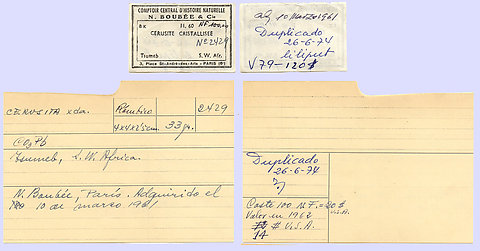 COMPTOIR CENTRAL D'HISTOIRE NATURELLE
N. BOUBÉE & Cie
8x 11.60 NF 100,00
CERUSITE CRISTALLISÉE
Nº 2429
Tsumeb S.W. Afr.
3, Place St-André-des-Arts - PARIS (6e)
adq 10 Marzo 1961
Duplicado
26-6-74
liliput
V79-120$
CERUSITA xda. Rómbico 2429
4x4x2½cm. 33 gr.
CO3Pb
Tsumeb, S.W. Africa.
N. Boubée, París. Adquirido el
10 de marzo 1961
Duplicado
26-6-74
Coste 100 N.F. = 20$
U.S.A.
Valor en 1962
$ U.S.A.
14